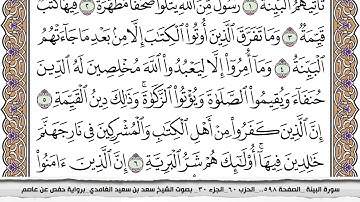 تَأْتِيَهُمُ ٱلْبَيِّنَةُ ١ رَسُولٌ مِّنَ ٱللَّهِ يَتْلُوا۟ صُحُفًا مُّطَهَّرَةً ٢ فِيهَا كُتُبٌ
قَيِّمَةٌ ٣ وَمَا تَفَرَّقَ ٱلَّذِينَ أُوتُوا۟ ٱلْكِتَٰبَ إِلَّا مِنۢ بَعْدِ مَا جَآءَتْهُمُ
ٱلْبَيِّنَةُ ٤ وَمَآ أُمِرُوٓا۟ إِلَّا لِيَعْبُدُوا۟ ٱللَّهَ مُخْلِصِينَ لَهُ ٱلدِّينَ
حُنَفَآءَ وَيُقِيمُوا۟ ٱلصَّلَوٰةَ وَيُؤْتُوا۟ ٱلزَّكَوٰةَ ۚ وَذَٰلِكَ دِينُ ٱلْقَيِّمَةِ ٥
إِنَّ ٱلَّذِينَ كَفَرُوا۟ مِنْ أَهْلِ ٱلْكِتَٰبِ وَٱلْمُشْرِكِينَ فِى نَارِ جَهَنَّمَ
خَٰلِدِينَ فِيهَآ ۚ أُو۟لَٰٓئِكَ هُمْ شَرُّ ٱلْبَرِيَّةِ ٦ إِنَّ ٱلَّذِينَ ءَامَنُوا۟
سورة البينة .. الصفحة ٥٩٨ .. الحزب ٦٠ .. الجزء ٣٠ .. بصوت الشيخ سعد بن سعيد الغامدي .. برواية حفص عن عاصم